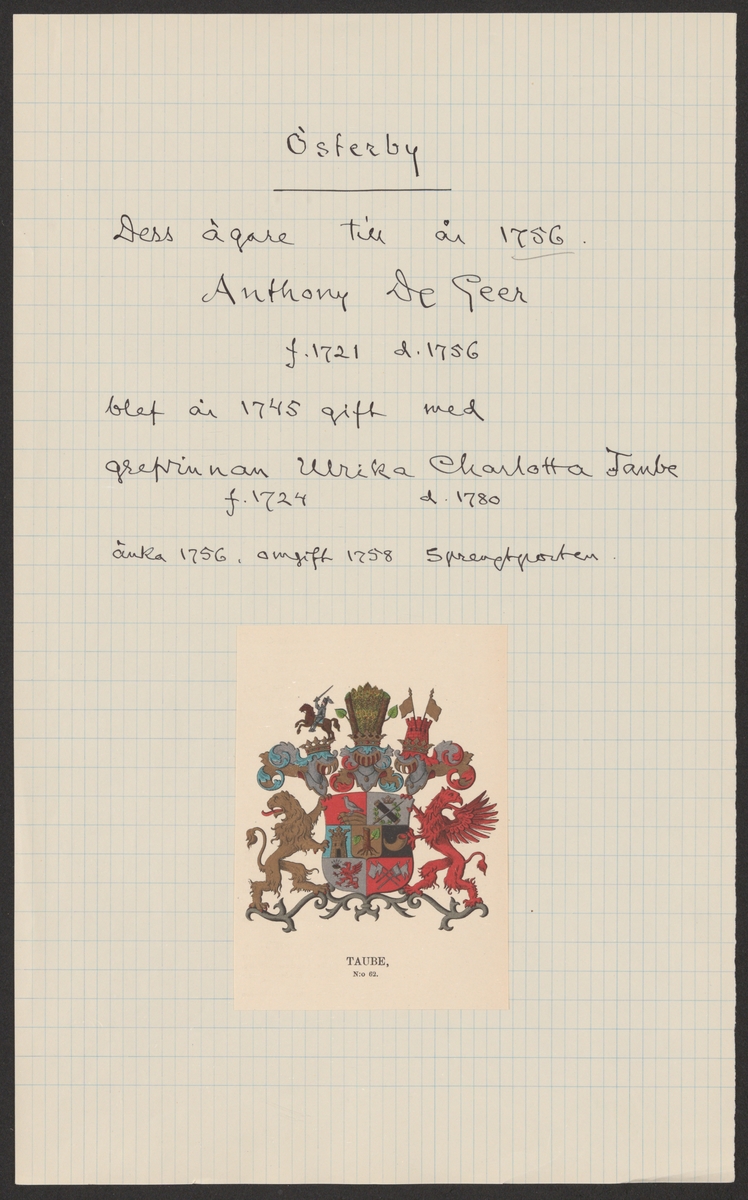 Österby
Dess ägare till år 1756.
Anthony De Geer
f. 1721 d. 1756
blef år 1745 gift med
grefvinnan Ulrika Charlotta Taube
f. 1724 d. 1780
änka 1756, omgift 1758 Sprengtporten.
TAUBE,
N:o 62.